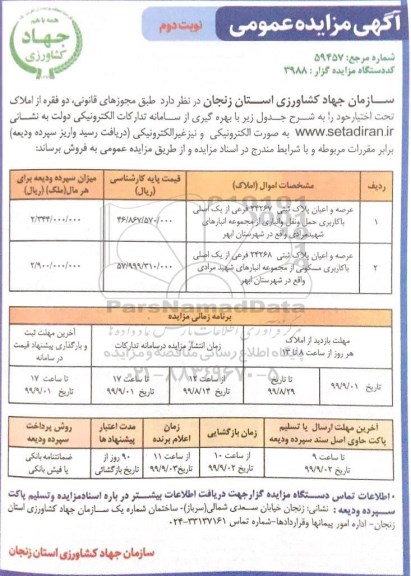 آگهی مزایده عمومی
نوبت دوم
همه با هم
جهاد
کشاورزی
شماره مرجع: ۵۹۴۵۷
کددستگاه مزایده گزار: ۳۹۸۸
سازمان جهاد کشاورزی استان زنجان در نظر دارد طبق مجوزهای قانونی، دو فقره از املاک
تحت اختیار خود را به شرح جدول زیر با بهره گیری از سامانه تدارکات الکترونیکی دولت به نشانی
www.setadiran.ir به صورت الکترونیکی و نیز غیرالکترونیکی (دریافت رسید واریز سپرده ودیعه)
برابر مقررات مربوطه و با شرایط مندرج در اسناد مزایده و از طریق مزایده عمومی به فروش برساند:
ردیف
مشخصات اموال (املاک)
قیمت پایه کارشناسی (ریال)
میزان سپرده ودیعه برای هر مال(ملک) (ریال)
۱
عرصه و اعیان پلاک ثبتی ۲۴۲۶۷ فرعی از یک اصلی
باکاربری حمل ونقل وانباری از مجموعه انبارهای
شهیدمرادی واقع در شهرستان ابهر
۴۶/۸۶۷/۵۷۰/۰۰۰
۲/۳۴۴/۰۰۰/۰۰۰
۲
عرصه و اعیان پلاک ثبتی ۲۴۲۶۸ فرعی از یک اصلی
باکاربری مسکونی از مجموعه انبارهای شهید مرادی
واقع در شهرستان ابهر
۵۷/۹۹۹/۳۱۰/۰۰۰
۲/۹۰۰/۰۰۰/۰۰۰
ParsNamadData
پایگاه اطلاع رسانی مناقصه و مزایده
۰۲۱-۸۸۳۴۹۶۷۰-۵
برنامه زمانی مزایده
مهلت بازدید از املاک
هر روز از ساعت ۸ تا ۱۳
زمان انتشار مزایده درسامانه تدارکات
آخرین مهلت ثبت
و بارگذاری پیشنهاد قیمت
در سامانه
تاریخ ۹۹/۹/۰۱
تا تاریخ ۹۹/۸/۲۹
از ساعت ۱۲
تاریخ ۹۹/۸/۱۴
تا ساعت ۱۷
تاریخ ۹۹/۹/۰۱
تا ساعت ۱۷
تاریخ ۹۹/۹/۰۱
آخرین مهلت ارسال یا تسلیم
پاکت حاوی اصل سند سپرده ودیعه
زمان بازگشایی
زمان اعلام برنده
مدت اعتبار پیشنهادها
روش پرداخت سپرده ودیعه
تا ساعت ۹
تاریخ ۹۹/۹/۰۲
از ساعت ۱۰
تاریخ ۹۹/۹/۰۲
از ساعت ۱۱
تاریخ ۹۹/۹/۰۳
۹۰ روز از
تاریخ بازگشائی
ضمانتنامه بانکی
یا فیش بانکی
• اطلاعات تماس دستگاه مزایده گزار جهت دریافت اطلاعات بیشتر در باره اسنادمزایده وتسلیم پاکت
سپرده ودیعه : نشانی: زنجان خیابان سعدی شمالی(سرباز)- ساختمان شماره یک سازمان جهاد کشاورزی استان
زنجان- اداره امور پیمانها وقراردادها-شماره تماس ۳۳۱۳۷۱۶۱-۰۲۴
سازمان جهاد کشاورزی استان زنجان